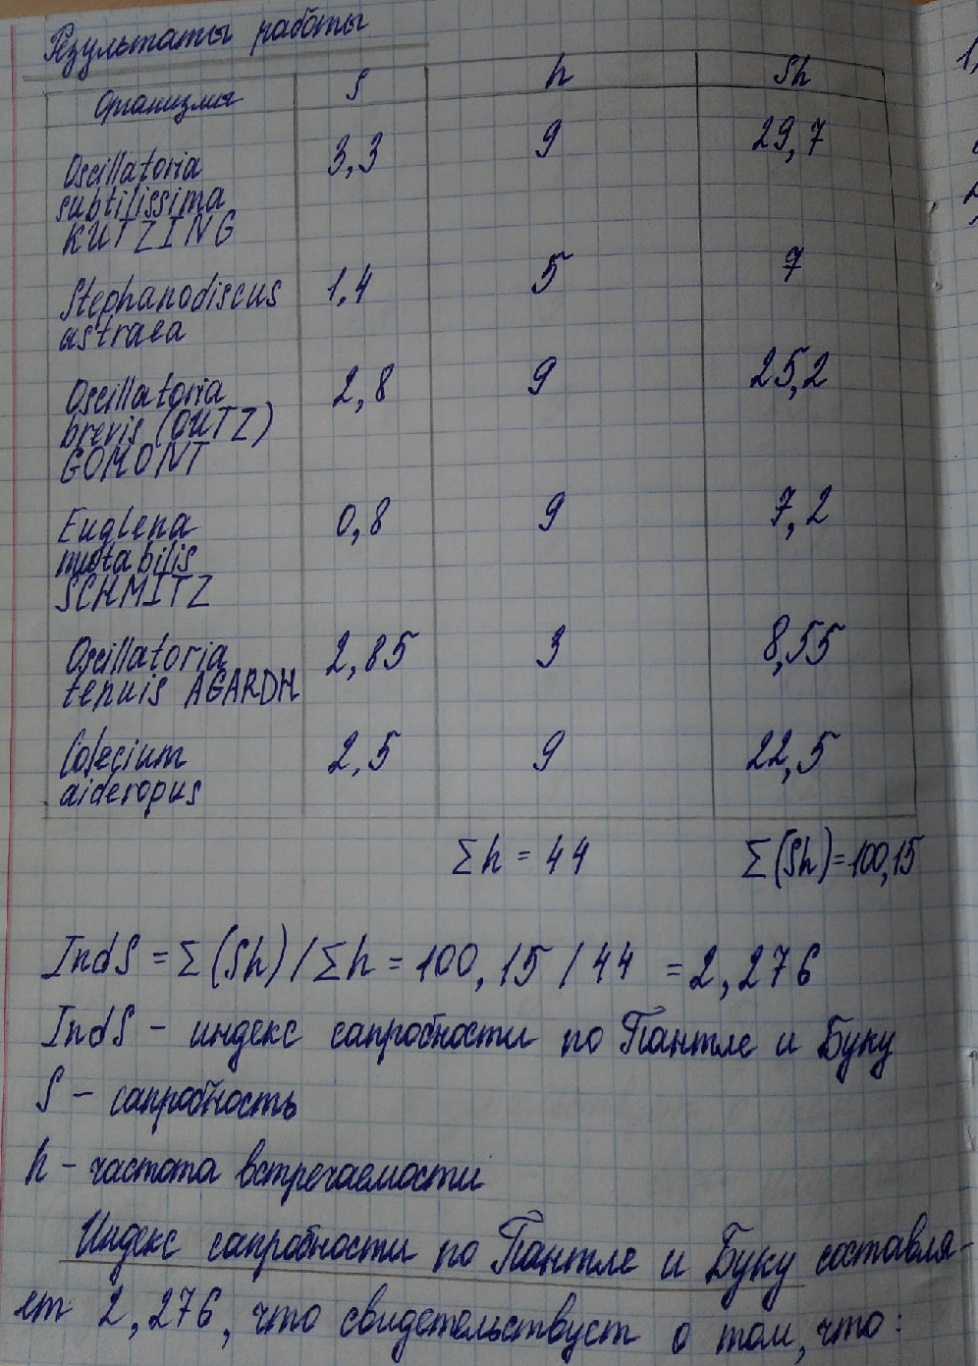 Результаты работы
Организмы S h Sh
Oscillatoria 3,3 9 29,7
subtilissima
KUTZING
Stephanodiscus 1,4 5 7
astraea
Oscillatoria 2,8 9 25,2
brevis (OUTZ)
GOMONT
Euglena 0,8 9 7,2
mutabilis
SCHMITZ
Oscillatoria 2,85 3 8,55
tenuis AGARDH
2,5 9 22,5
Σh = 44 Σ(Sh)=100,15
IndS = Σ(Sh)/Σh = 100,15/44 = 2,276
IndS – индекс сапробности по Пантле и Буку
S – сапробность
h – частота встречаемости
Индекс сапробности по Пантле и Буку составля-
ет 2,276, что свидетельствует о том, что: